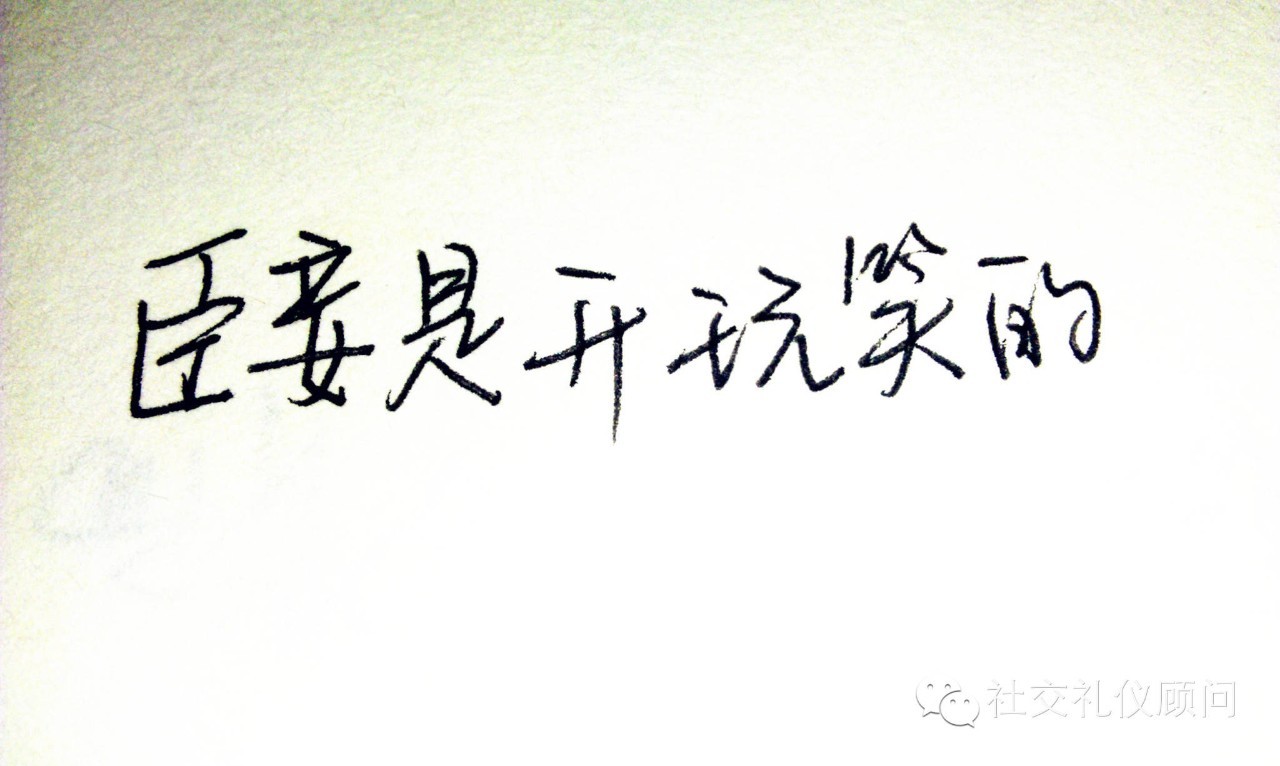 臣妾是开玩笑的
社交礼仪顾问